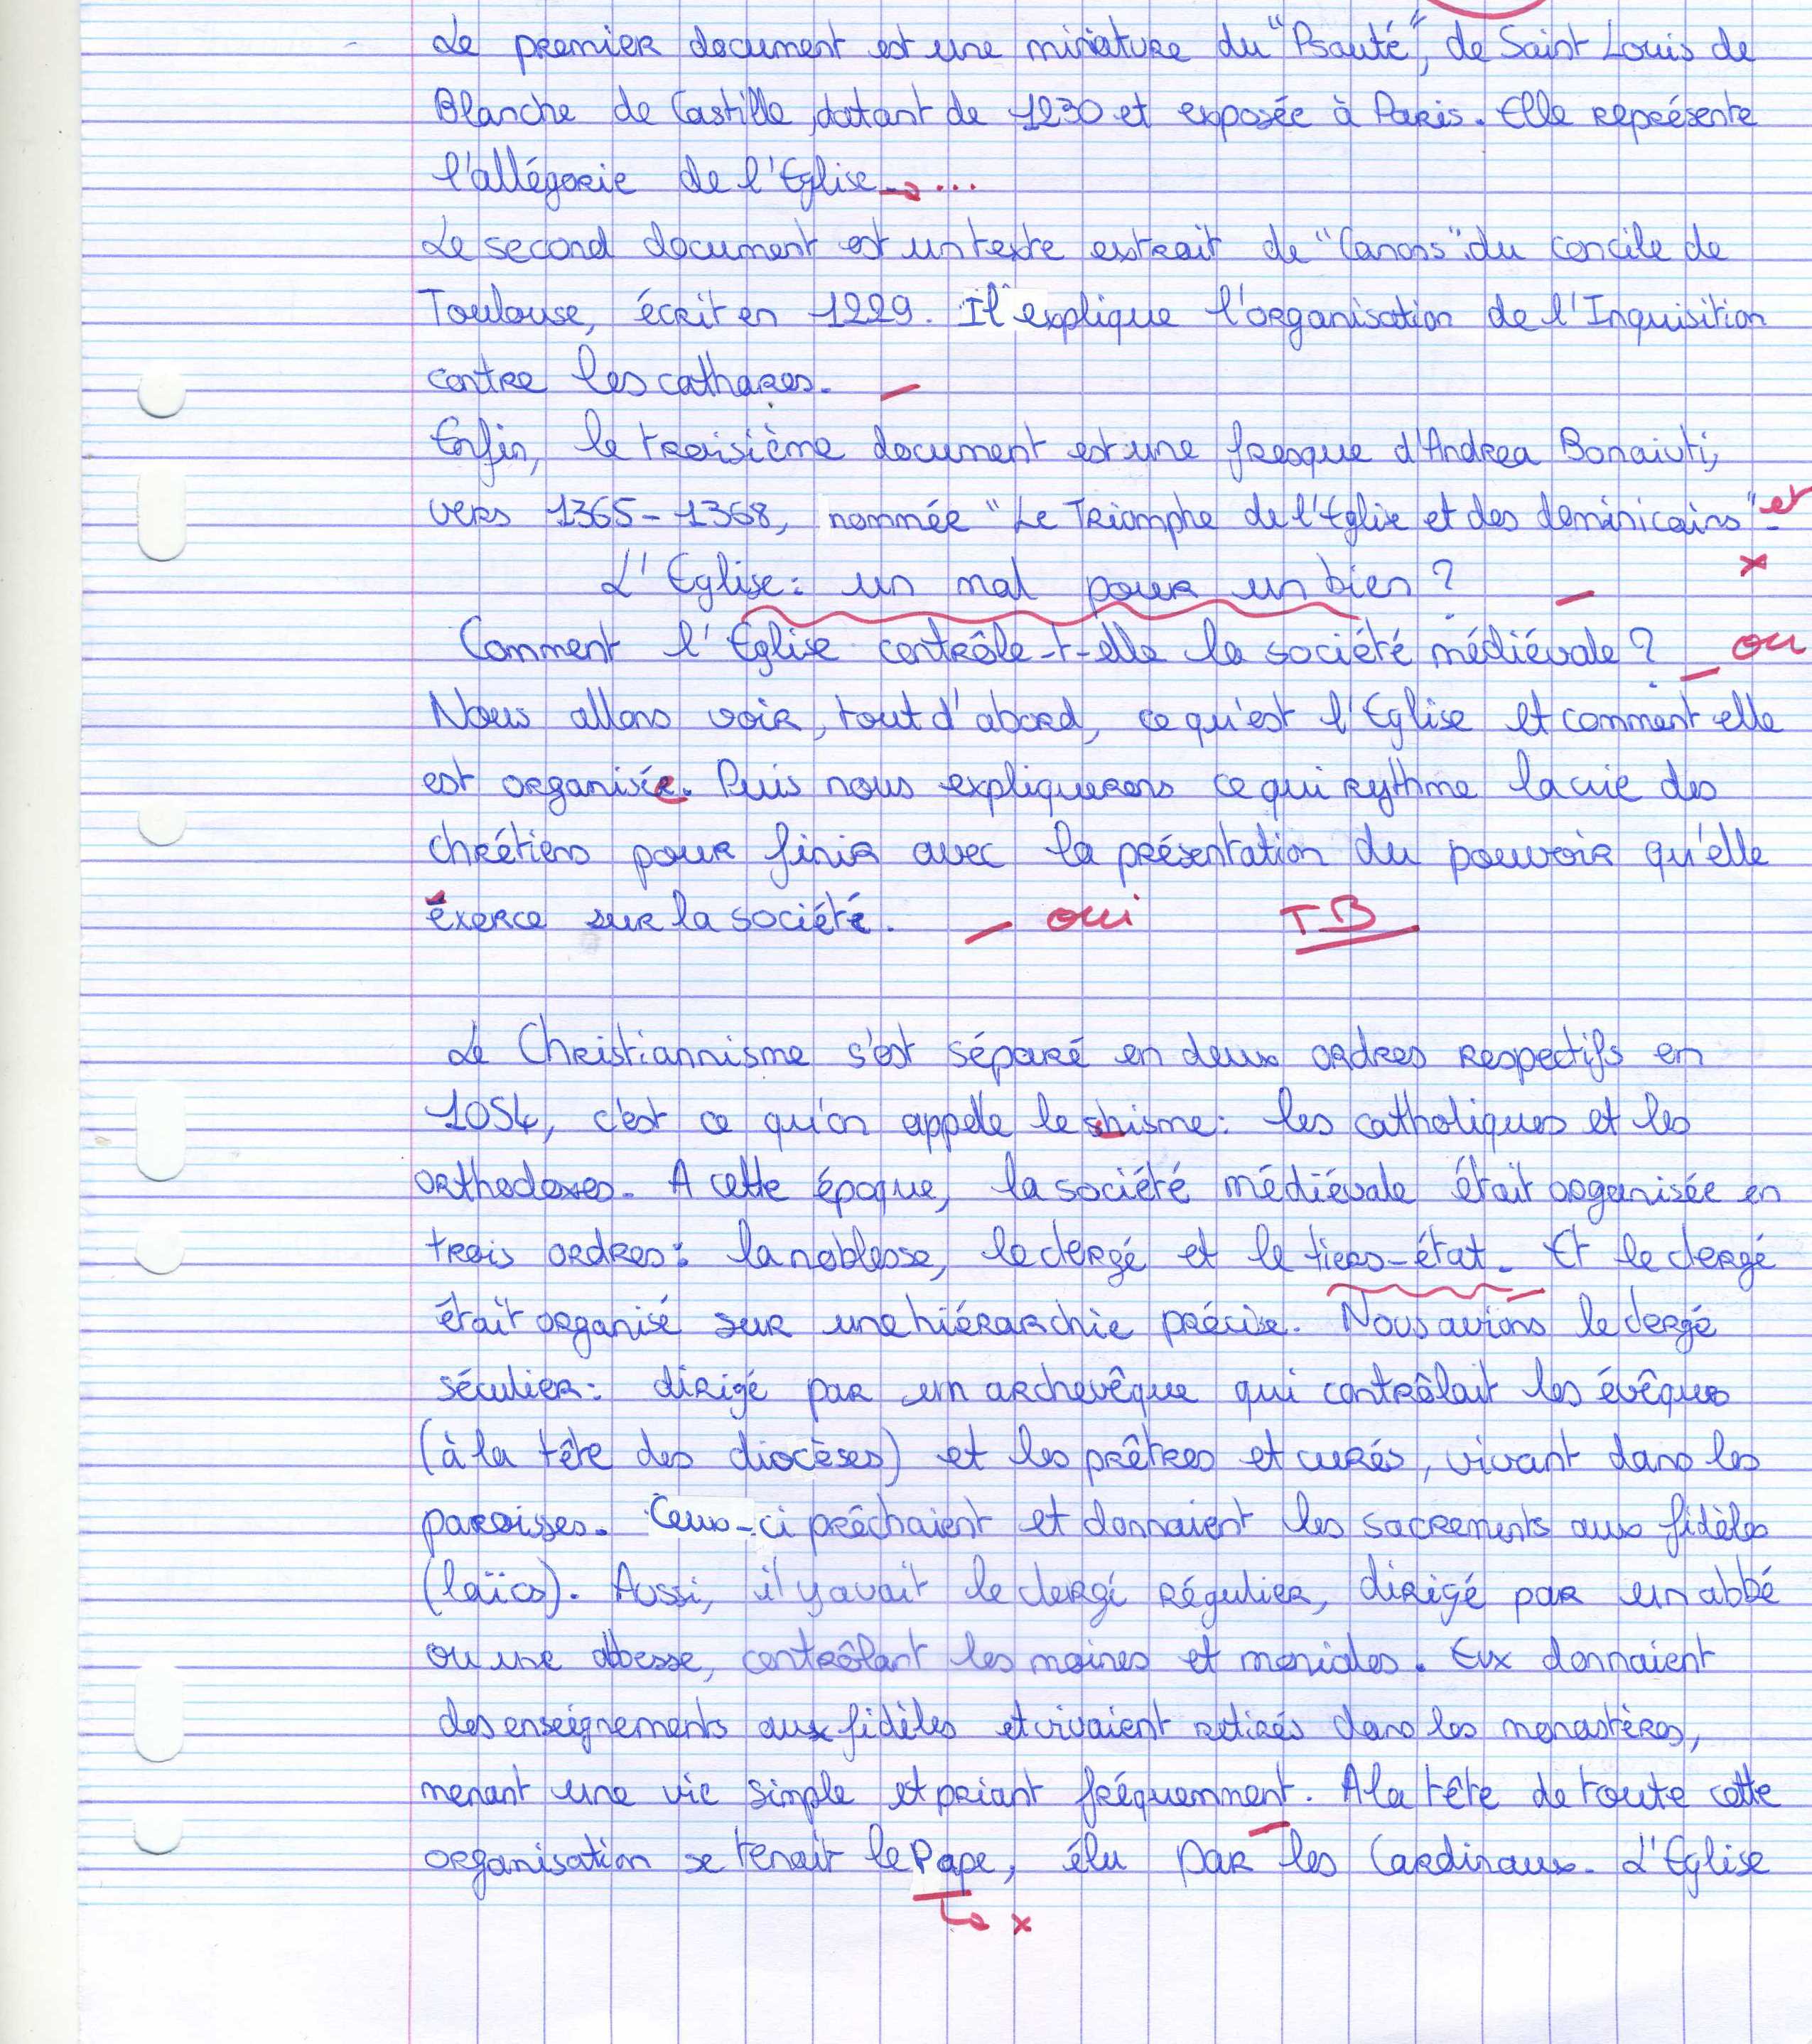 Le premier document est une miniature du "Psauté", de Saint Louis de
Blanche de Castille, datant de 1230 et exposée à Paris. Elle représente
l'allégorie de l'Eglise. → ...
Le second document est un texte extrait de "Canons" du concile de
Toulouse, écrit en 1229. Il explique l'organisation de l'Inquisition
contre les cathares.
Enfin, le troisième document est une fresque d'Andrea Bonaiuti,
vers 1365-1368, nommée "Le Triomphe de l'Eglise et des dominicains". et
x
L'Eglise : un mal pour un bien ?
Comment l'Eglise contrôle-t-elle la société médiévale ? oui
Nous allons voir, tout d'abord, ce qu'est l'Eglise et comment elle
est organisée. Puis nous expliquerons ce qui rythme la vie des
chrétiens pour finir avec la présentation du pouvoir qu'elle
éxerce sur la société. oui TB
Le Christiannisme s'est séparé en deux ordres respectifs en
1054, c'est ce qu'on appelle le shisme : les catholiques et les
orthodoxes. A cette époque, la société médiévale était organisée en
trois ordres : la noblesse, le clergé et le tiers-état. Et le clergé
était organisé sur une hiérarchie précise. Nous avions le clergé
séculier : dirigé par un archevêque qui contrôlait les évêques
(à la tête des diocèses) et les prêtres et curés, vivant dans les
paroisses. Ceux-ci prêchaient et donnaient les sacrements aux fidèles
(laïcs). Aussi, il y avait le clergé régulier, dirigé par un abbé
ou une abbesse, contrôlant les moines et moniales. Eux donnaient
des enseignements aux fidèles et vivaient retirés dans les monastères,
menant une vie simple et priant fréquemment. A la tête de toute cette
organisation se tenait le Pape, élu par les Cardinaux. L'Eglise
↳ x